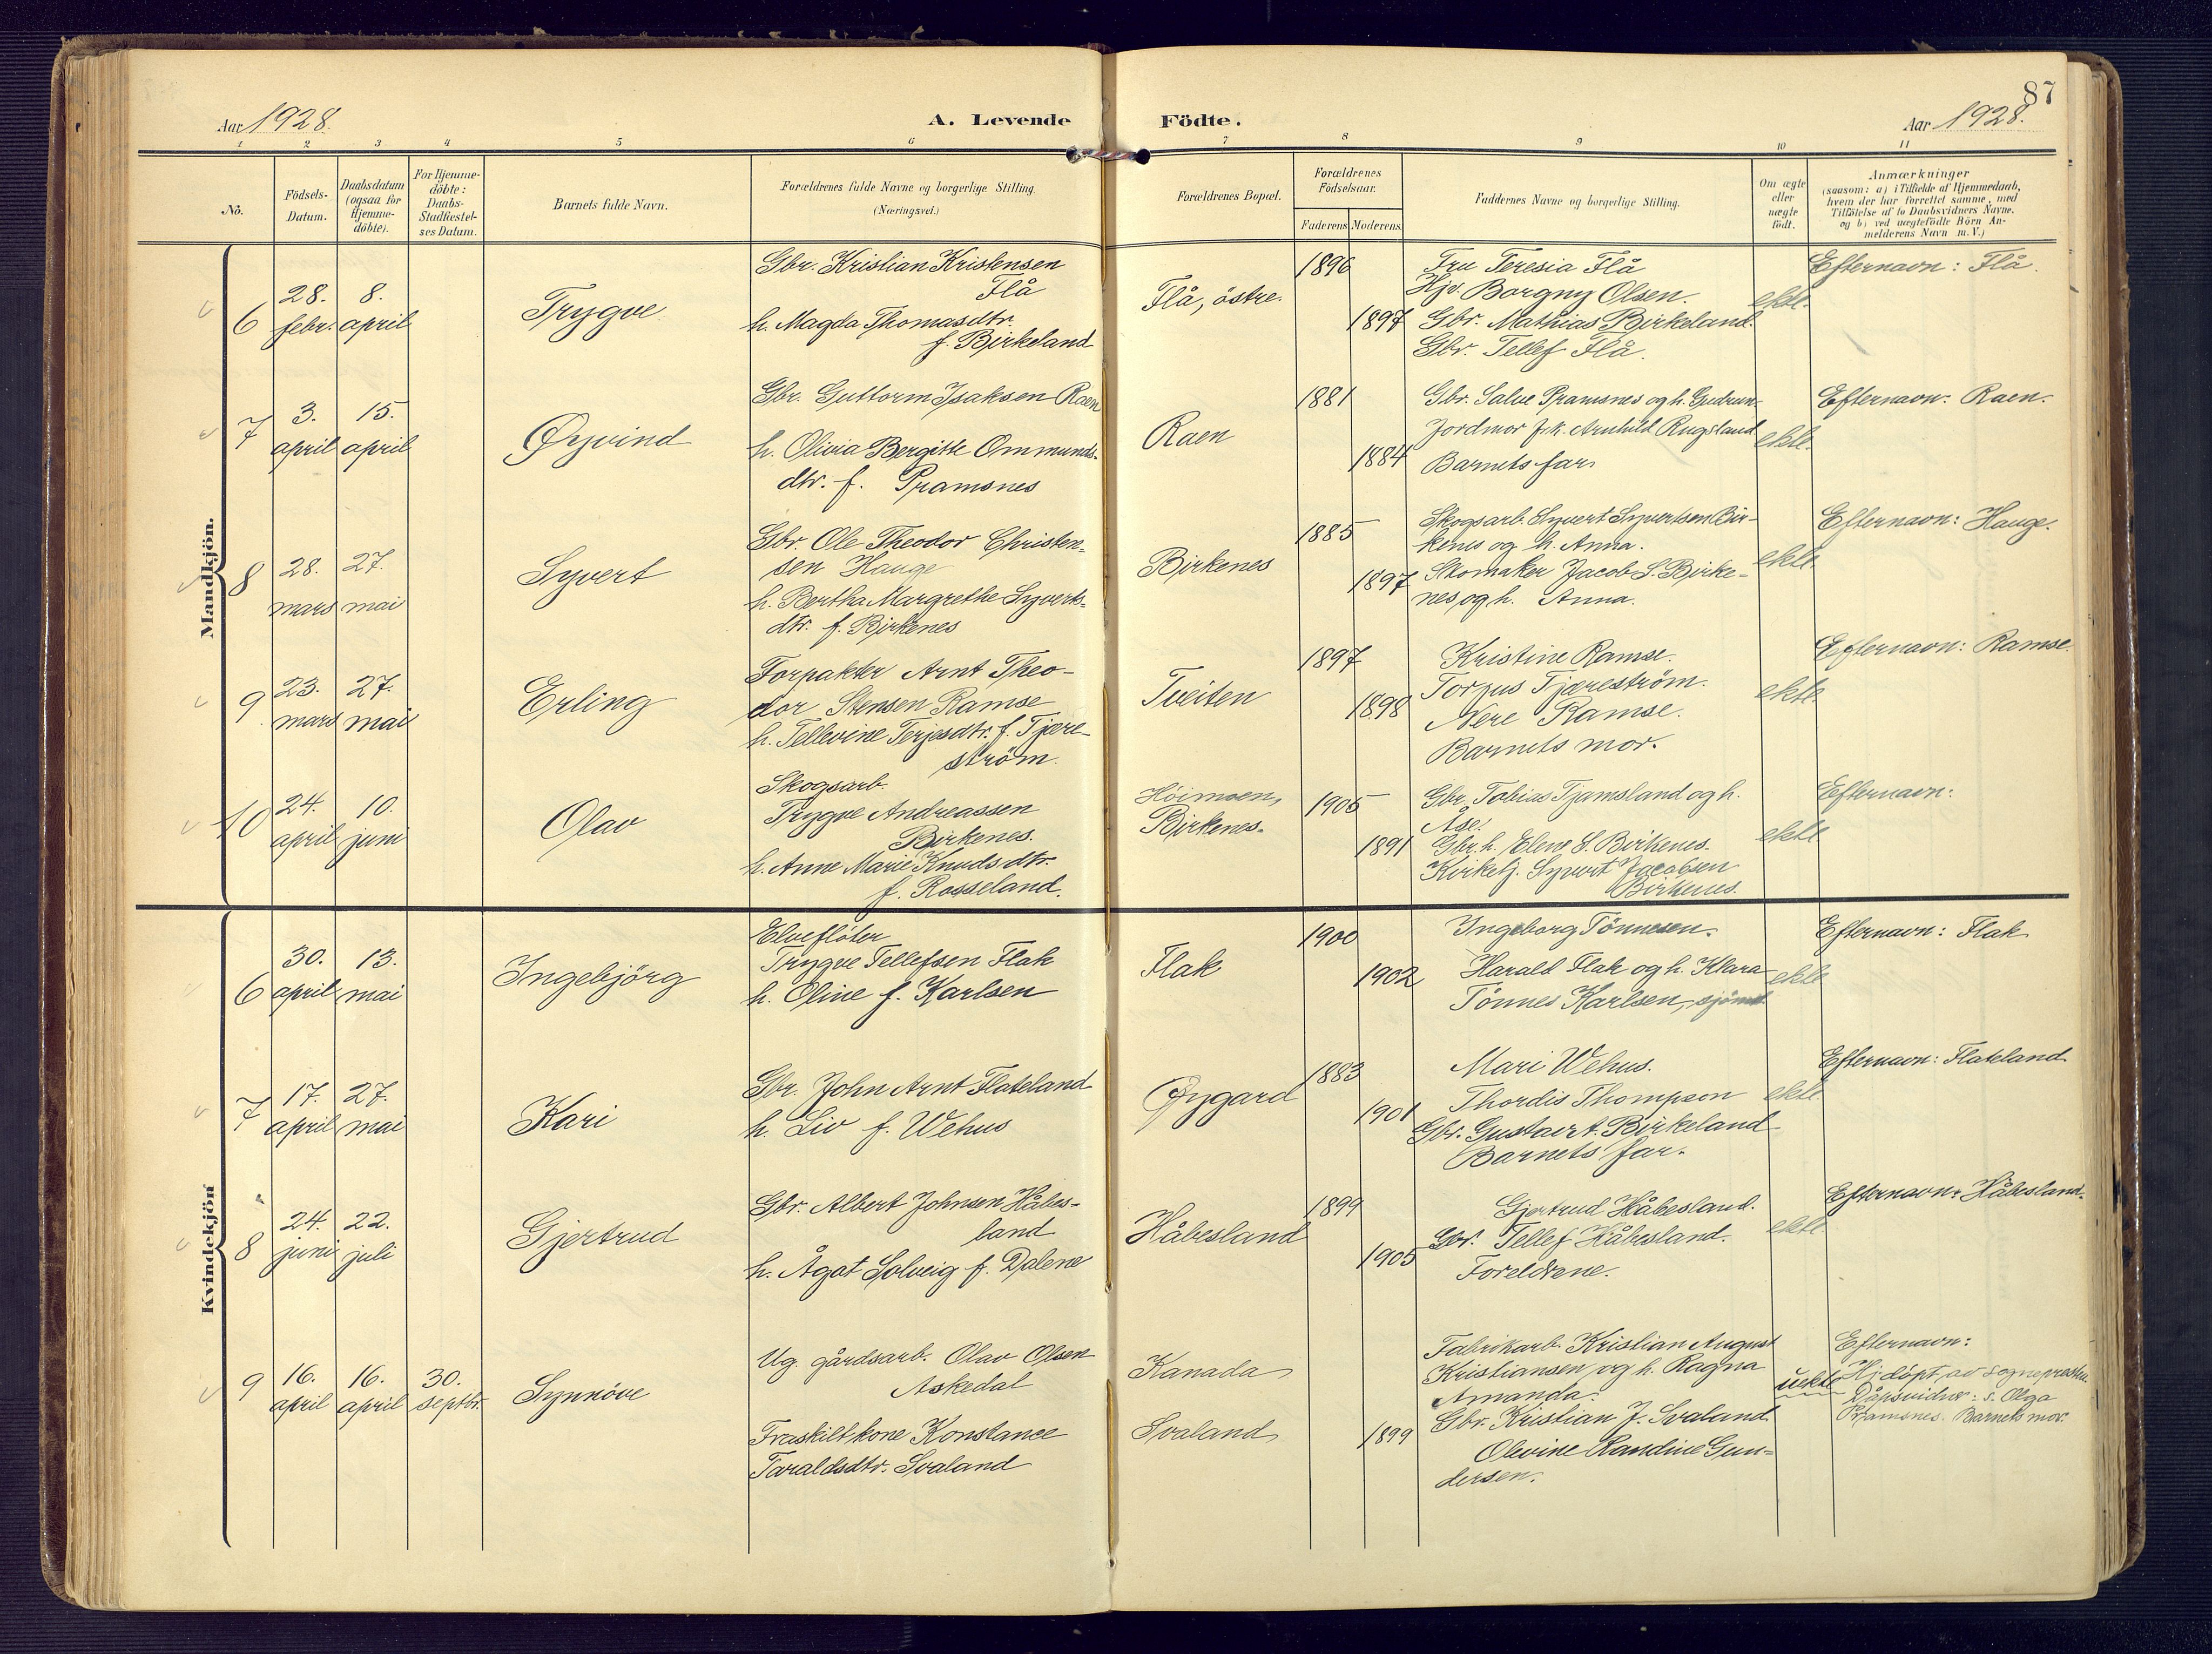 87
Aar 1928.
A. Levende Födte.
Aar 1928.
1 2 3 4 5 6 7 8 9 10 11
No.
Födsels-Datum.
Daabsdatum (ogsaa for Hjemme-döbte).
For Hjemme-döbte: Daabs-Stadfæstel-ses Datum.
Barnets fulde Navn.
Forældrenes fulde Navne og borgerlige Stilling.
(Næringsvei.)
Forældrenes Bopæl.
Forældrenes Födselsaar.
Faderens Moderens
Faddernes Navne og borgerlige Stilling.
Om ægte eller uægte födt.
Anmærkninger
(saasom: a) i Tilfælde af Hjemmedaab,
hvem der har forrettet samme, med
Tilföielse af to Daabsvidners Navne,
og b) ved uægtefödte Börn An-
melderens Navn m. V.)
Mandkjön.
6
28. febr.
8. april
Trygve
Gbr. Kristian Kristensen
Flå
h. Magda Thomasdtr.
f. Birkeland
Flå, östre.
1896
1897
Fru Teresia Flå
Hjv. Borgny Olsen.
Gbr. Mathias Birkeland.
Gbr. Tellef Flå.
ekte.
Efternavn: Flå.
7
3. april
15. april
Øyvind
Gbr. Guttorm Isaksen Raen
h. Olivia Bergitte Ommunds-
dtr. f. Pramsnes
Raen
1881
1884
Gbr. Salve Pramsnes og h. Gudrun
Jordmor frk. Arnhild Rugsland
Barnets far.
ekte.
Efternavn: Raen.
8
28. mars
27. mai
Syvert
Gbr. Ole Theodor Christen-
sen Hauge
h. Bertha Margrethe Syverts-
dtr. f. Birkenes
Birkenes
1885
1897
Skogsarb. Syvert Syvertsen Bir-
kenes og h. Anna.
Skomaker Jacob S. Birke-
nes og h. Anna.
ekte
Efternavn: Hauge.
9
23. mars
27. mai
Erling
Forpakter Arnt Theo-
dor Stensen Ramse
h. Tellevine Terjesdtr. f. Tjære-
ström.
Tveiten
1897
1898
Kristine Ramse.
Torjus Tjæreström.
Nere Ramse.
Barnets mor.
ekte.
Efternavn: Ramse.
10
24. april
10. juni
Olav
Skogsarb.
Trygve Andreassen
Birkenes.
h. Anne Marie Knudsdtr.
f. Rosseland.
Höimoen,
Birkenes.
1905
1891
Gbr. Tobias Tjamsland og h.
Åse.
Gbr.h. Elene S. Birkenes.
Kirketj. Syvert Jacobsen
Birkenes.
ekte
Efternavn:
Kvindekjön
6
30. april
13. mai
Ingebjörg
Elveflöter
Trygve Tellefsen Flak
h. Oline f. Karlsen
Flak
1900
1902
Ingeborg Tönnesen.
Harald Flak og h. Klara
Tönnes Karlsen, sjömt.
ekte
Efternavn: Flak
7
17. april
27. mai
Kari
Gbr. John Arnt Flateland
h. Liv f. Wehus
Øygard
1883
1901
Mari Wehus.
Thordis Thompson
Gbr. Gustav T. Birkeland
Barnets far.
ekte
Efternavn: Flateland
8
24. juni
22. juli
Gjertrud
Gbr. Albert Johnsen Håbes-
land
h. Ågot Solveig f. Dalene
Håbesland
1899
1905
Gjertrud Håbesland.
Gbr. Tellef Håbesland.
Foreldrene.
ekte.
Efternavn: Håbesland.
9
16. april
16. april
30. septbr.
Synnöve
Ug. gårdsarb. Olav Olsen
Askedal
Fraskilt kone Konstance
Taraldsdtr. Svaland
Kanada
Svaland
1899
Fabrikarb. Kristian August
Kristiansen og h. Ragna
Amanda.
Gbr. Kristian J. Svaland
Olevine Randine Gun-
dersen.
uekte
Efternavn:
Hj.döpt av sognepresten
Dåpsvidner: s. Olga
Pramsnes. Barnets mor.